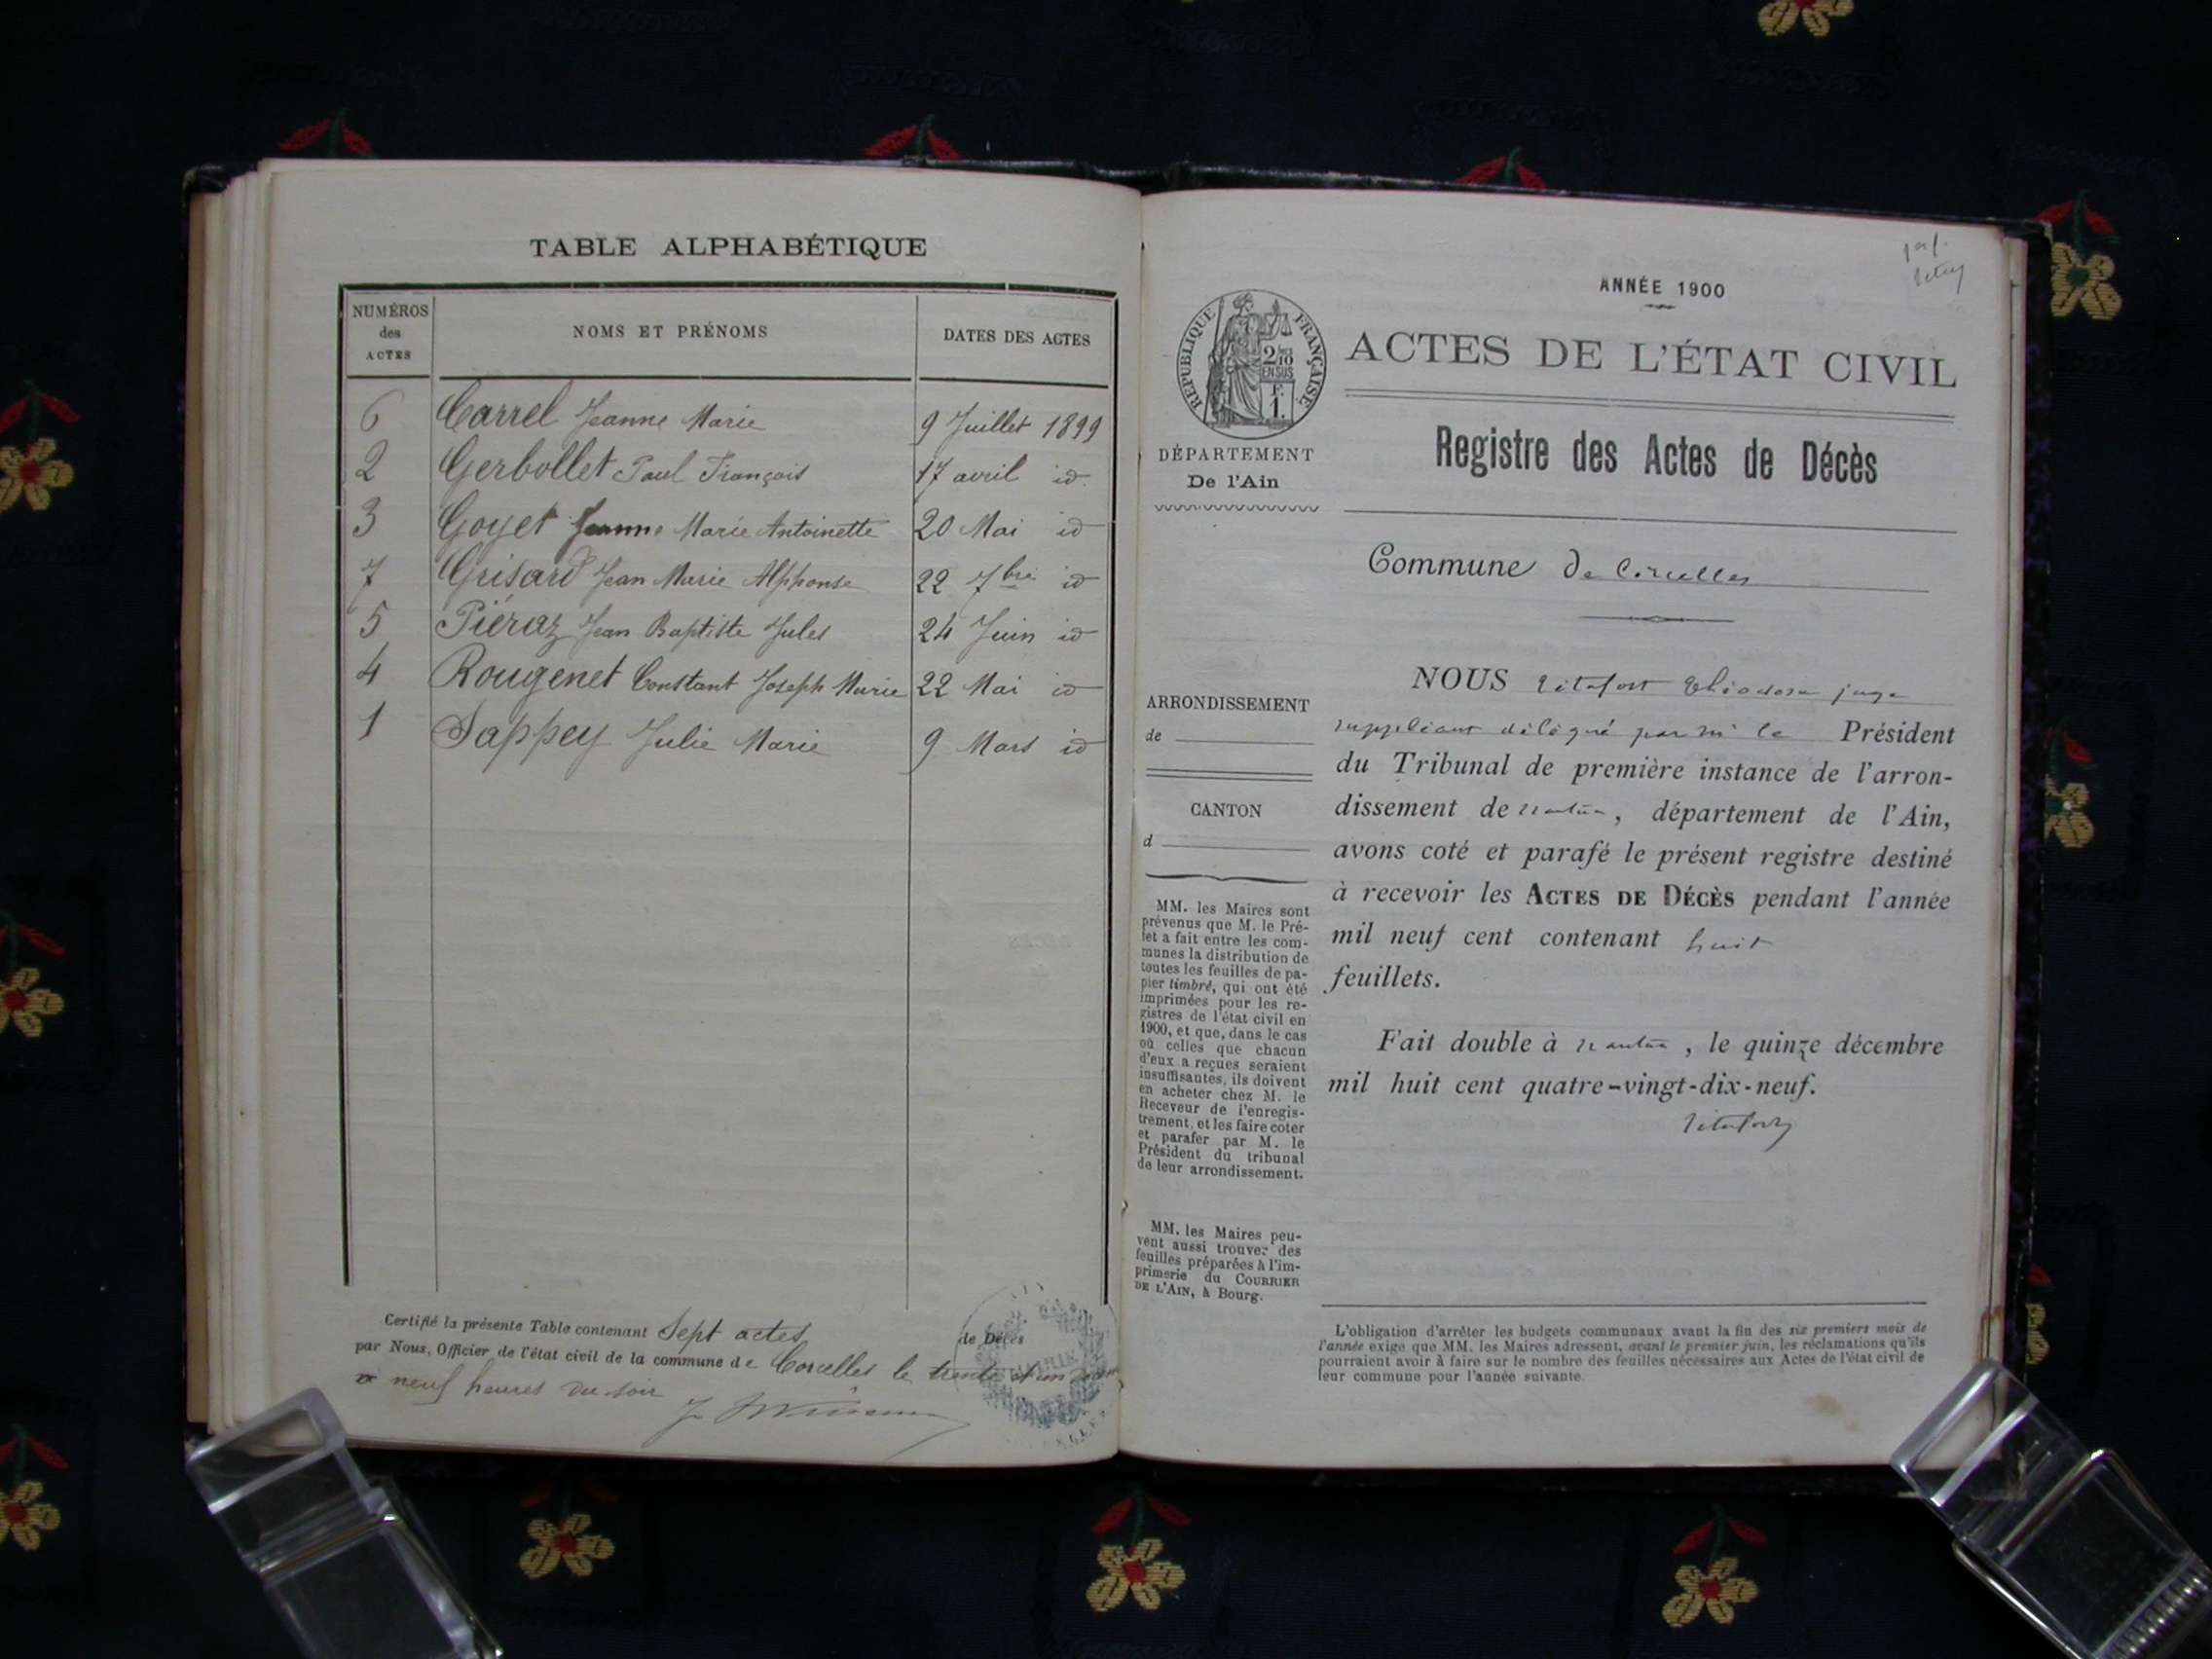 TABLE ALPHABÉTIQUE
NUMÉROS des ACTES
NOMS ET PRÉNOMS
DATES DES ACTES
6 Carrel Jeanne Marie 9 Juillet 1899
2 Gerbollet Paul François 17 avril id
3 Goyet Jeanne Marie Antoinette 20 Mai id
7 Grisard Jean Marie Alphonse 22 7bre id
5 Piéraz Jean Baptiste Jules 24 Juin id
4 Rougenet Constant Joseph Marie 22 Mai id
1 Sappey Julie Marie 9 Mars id
Certifié la présente Table contenant Sept actes de Décès
par Nous, Officier de l'état civil de la commune de Corcelles le trente et un
à neuf heures du soir
ANNÉE 1900
RÉPUBLIQUE FRANÇAISE
2/10 EN SUS
F. 1.
ACTES DE L'ÉTAT CIVIL
Registre des Actes de Décès
DÉPARTEMENT
De l'Ain
Commune de Corcelles
ARRONDISSEMENT
de
CANTON
d
MM. les Maires sont
prévenus que M. le Pré-
fet a fait entre les com-
munes la distribution de
toutes les feuilles de pa-
pier timbré, qui ont été
imprimées pour les re-
gistres de l'état civil en
1900, et que, dans le cas
où celles que chacun
d'eux a reçues seraient
insuffisantes, ils doivent
en acheter chez M. le
Receveur de l'enregis-
trement, et les faire coter
et parafer par M. le
Président du tribunal
de leur arrondissement.
MM. les Maires peu-
vent aussi trouver des
feuilles préparées à l'im-
primerie du COURRIER
DE L'AIN, à Bourg.
NOUS juge
suppléant délégué par Mr le Président
du Tribunal de première instance de l'arron-
dissement de Nantua, département de l'Ain,
avons coté et parafé le présent registre destiné
à recevoir les ACTES DE DÉCÈS pendant l'année
mil neuf cent contenant huit
feuillets.
Fait double à Nantua, le quinze décembre
mil huit cent quatre-vingt-dix-neuf.
L'obligation d'arrêter les budgets communaux avant la fin des six premiers mois de
l'année exige que MM. les Maires adressent, avant le premier juin, les réclamations qu'ils
pourraient avoir à faire sur le nombre des feuilles nécessaires aux Actes de l'état civil de
leur commune pour l'année suivante.